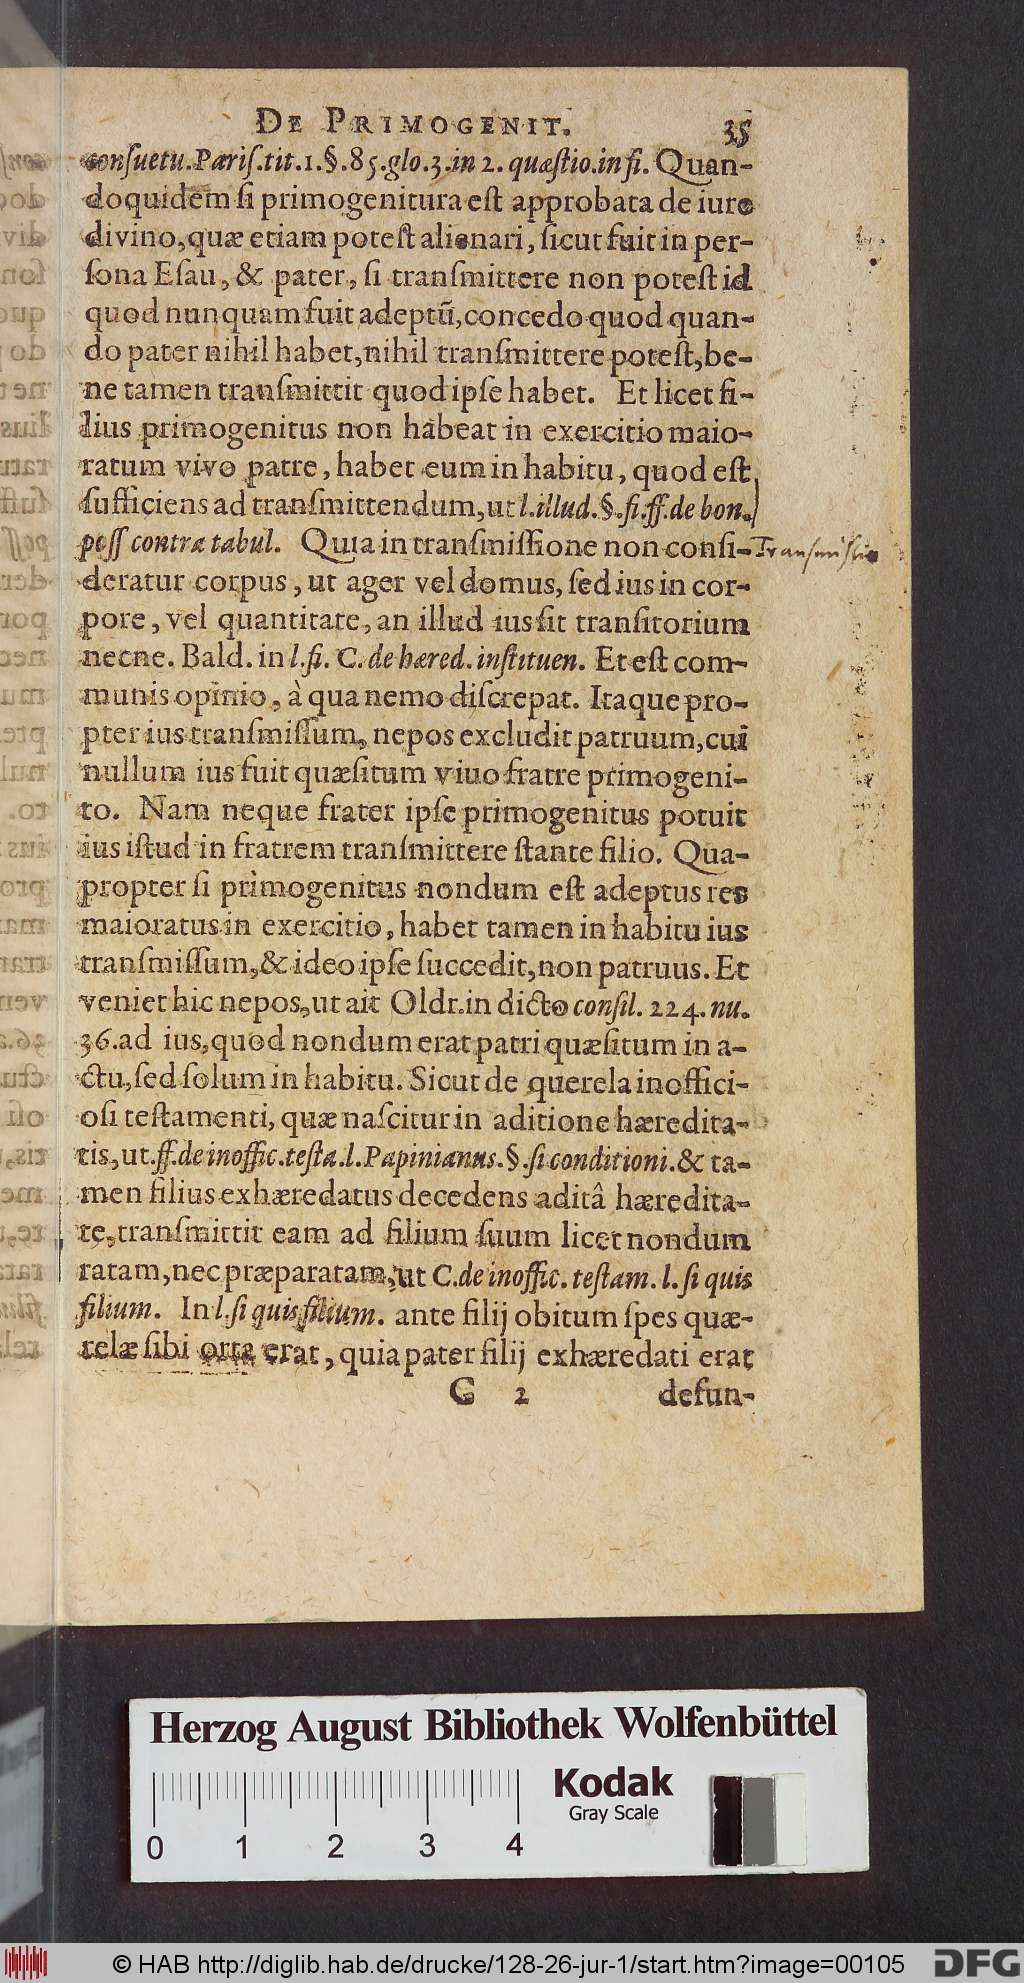 DE PRIMOGENIT. 35
consuetu.Paris.tit.1.§.85.glo.3.in 2. quæstio.in fi. Quan-
doquidem si primogenitura est approbata de iure
divino, quæ etiam potest alienari, sicut fuit in per-
sona Esau, & pater, si transmittere non potest id
quod nunquam fuit adeptũ, concedo quod quan-
do pater nihil habet, nihil transmittere potest, be-
ne tamen transmittit quod ipse habet. Et licet fi-
lius primogenitus non habeat in exercitio maio-
ratum vivo patre, habet eum in habitu, quod est
sufficiens ad transmittendum, ut l.illud.§.fi.ff.de bon.
poss contra tabul. Quia in transmissione non consi- Transmissio
deratur corpus, ut ager vel domus, sed ius in cor-
pore, vel quantitate, an illud ius sit transitorium
necne. Bald. in l.fi. C. de hæred. instituen. Et est com-
munis opinio, à qua nemo discrepat. Itaque pro-
pter ius transmissum, nepos excludit patruum, cui
nullum ius fuit quæsitum viuo fratre primogeni-
to. Nam neque frater ipse primogenitus potuit
ius istud in fratrem transmittere stante filio. Qua-
propter si primogenitus nondum est adeptus res
maioratus in exercitio, habet tamen in habitu ius
transmissum, & ideo ipse succedit, non patruus. Et
veniet hic nepos, ut ait Oldr. in dicto consil. 224. nu.
36. ad ius, quod nondum erat patri quæsitum in a-
ctu, sed solum in habitu. Sicut de querela inoffici-
osi testamenti, quæ nascitur in aditione hæredita-
tis, ut.ff.de inoffic.testa.l.Papinianus.§.si conditioni.& ta-
men filius exhæredatus decedens aditâ hæredita-
te, transmittit eam ad filium suum licet nondum
ratam, nec præparatam, ut C.de inoffic. testam. l. si quis
filium. In l.si quis filium. ante filij obitum spes quæ-
relæ sibi orta erat, quia pater filij exhæredati erat
G 2 defun-
Herzog August Bibliothek Wolfenbüttel
Kodak
Gray Scale
0 1 2 3 4
© HAB http://diglib.hab.de/drucke/128-26-jur-1/start.htm?image=00105 DFG